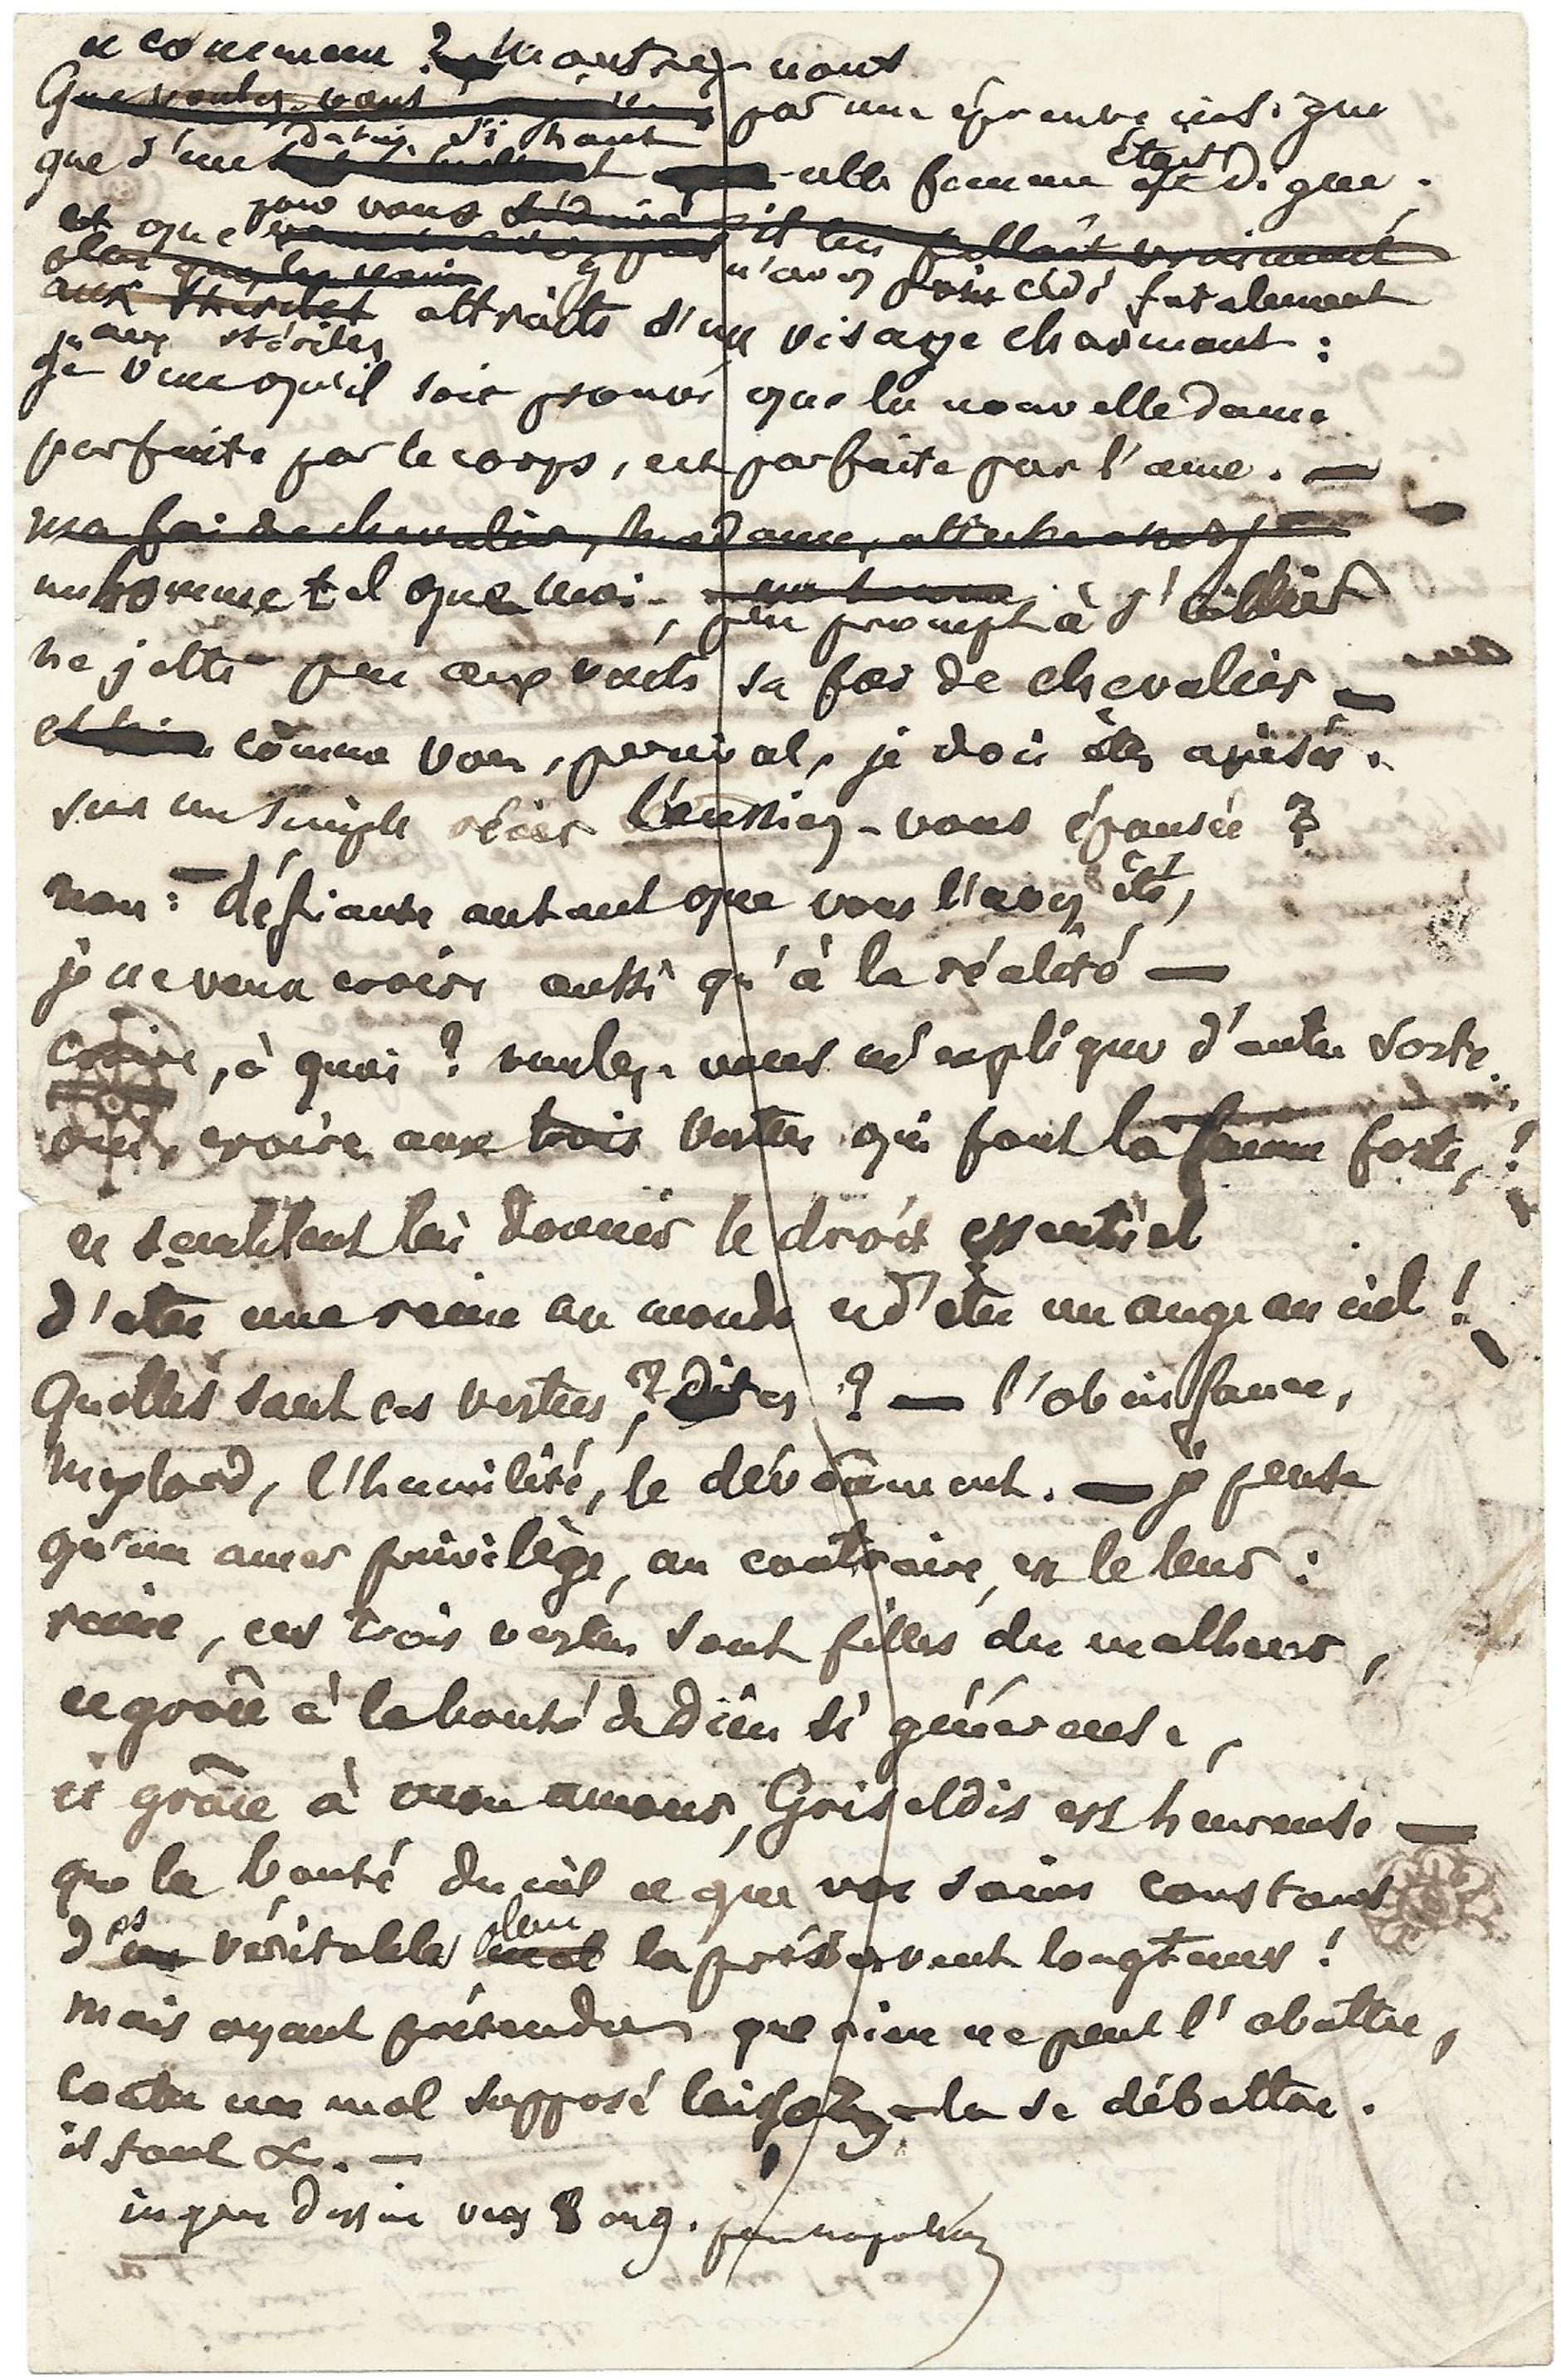 et comment ? Montrez-nous
Que voulez-vous par une épreuve insigne
que d'un destin si haut telle femme était digne.
et que pour vous séduire il lui fallait vraiment
n'avez point cédé fatalement
aux stériles attraits d'un visage charmant :
aux stériles
je veux qu'il soit prouvé que la nouvelle dame
parfaite par le corps, est parfaite par l'ame. —
ma foi de chevalier, madame, atteste
un homme tel que moi, peu prompt à s'allier
ne jette pas aux vents sa foi de chevalier —
et bien comme vous, perceval, je dois être avisée.
sur un simple récit l'eussiez-vous épousée ?
non : — défiante autant que vous l'avez été,
je ne veux croire aussi qu'à la réalité —
croire, à quoi ? voulez-vous m'expliquer d'autre sorte.
oui, croire aux trois vertus qui font la femme forte, !
et semblent lui donner le droit essentiel
d'etre une reine au monde et d'etre un ange au ciel !
Quelles sont ces vertus, ? dites ? — l'obéissance,
Mylord, l'humilité, le dévoûment. — je pense
qu'un amer privilège, au contraire, est le leur :
reine, ces trois vertus sont filles du malheur,
et grâce à la bonté de Dieu si généreuse,
et grâce à mon amour, Griseldis est heureuse —
que la bonté du ciel et que vos soins constans
des véritables maux la préservent longtems !
Mais ayant prétendu que rien ne peut l'abattre,
contre un mal supposé laissez-la se débattre.
il faut &. —